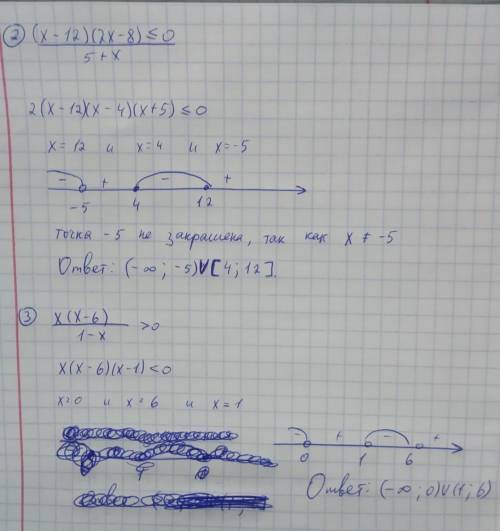 ② (x-12)(2x-8) ≤ 0
5+x
2(x-12)(x-4)(x+5) ≤ 0
x=12 и x=4 и x=-5
- + - +
-5 4 12
точка -5 не закрашена, так как x ≠ -5
Ответ: (-∞; -5)∨[4; 12].
③ x(x-6) >0
1-x
x(x-6)(x-1)<0
x=0 и x=6 и x=1
- + - +
0 1 6
Ответ: (-∞; 0)∨(1; 6)